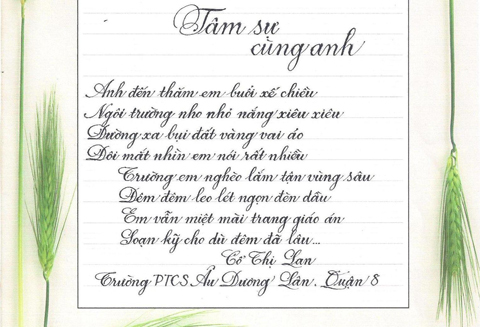 Tâm sự
cùng anh
Anh đến thăm em buổi xế chiều
Ngôi trường nho nhỏ nắng xiêu xiêu
Đường xa bụi đất vàng vai áo
Đôi mắt nhìn em nói rất nhiều
Trường em nghèo lắm tận vùng sâu
Đêm đêm leo lét ngọn đèn dầu
Em vẫn miệt mài trang giáo án
Soạn kỹ cho dù đêm đã lâu...
Cô Thị Lan
Trường PTCS Âu Dương Lân. Quận 8